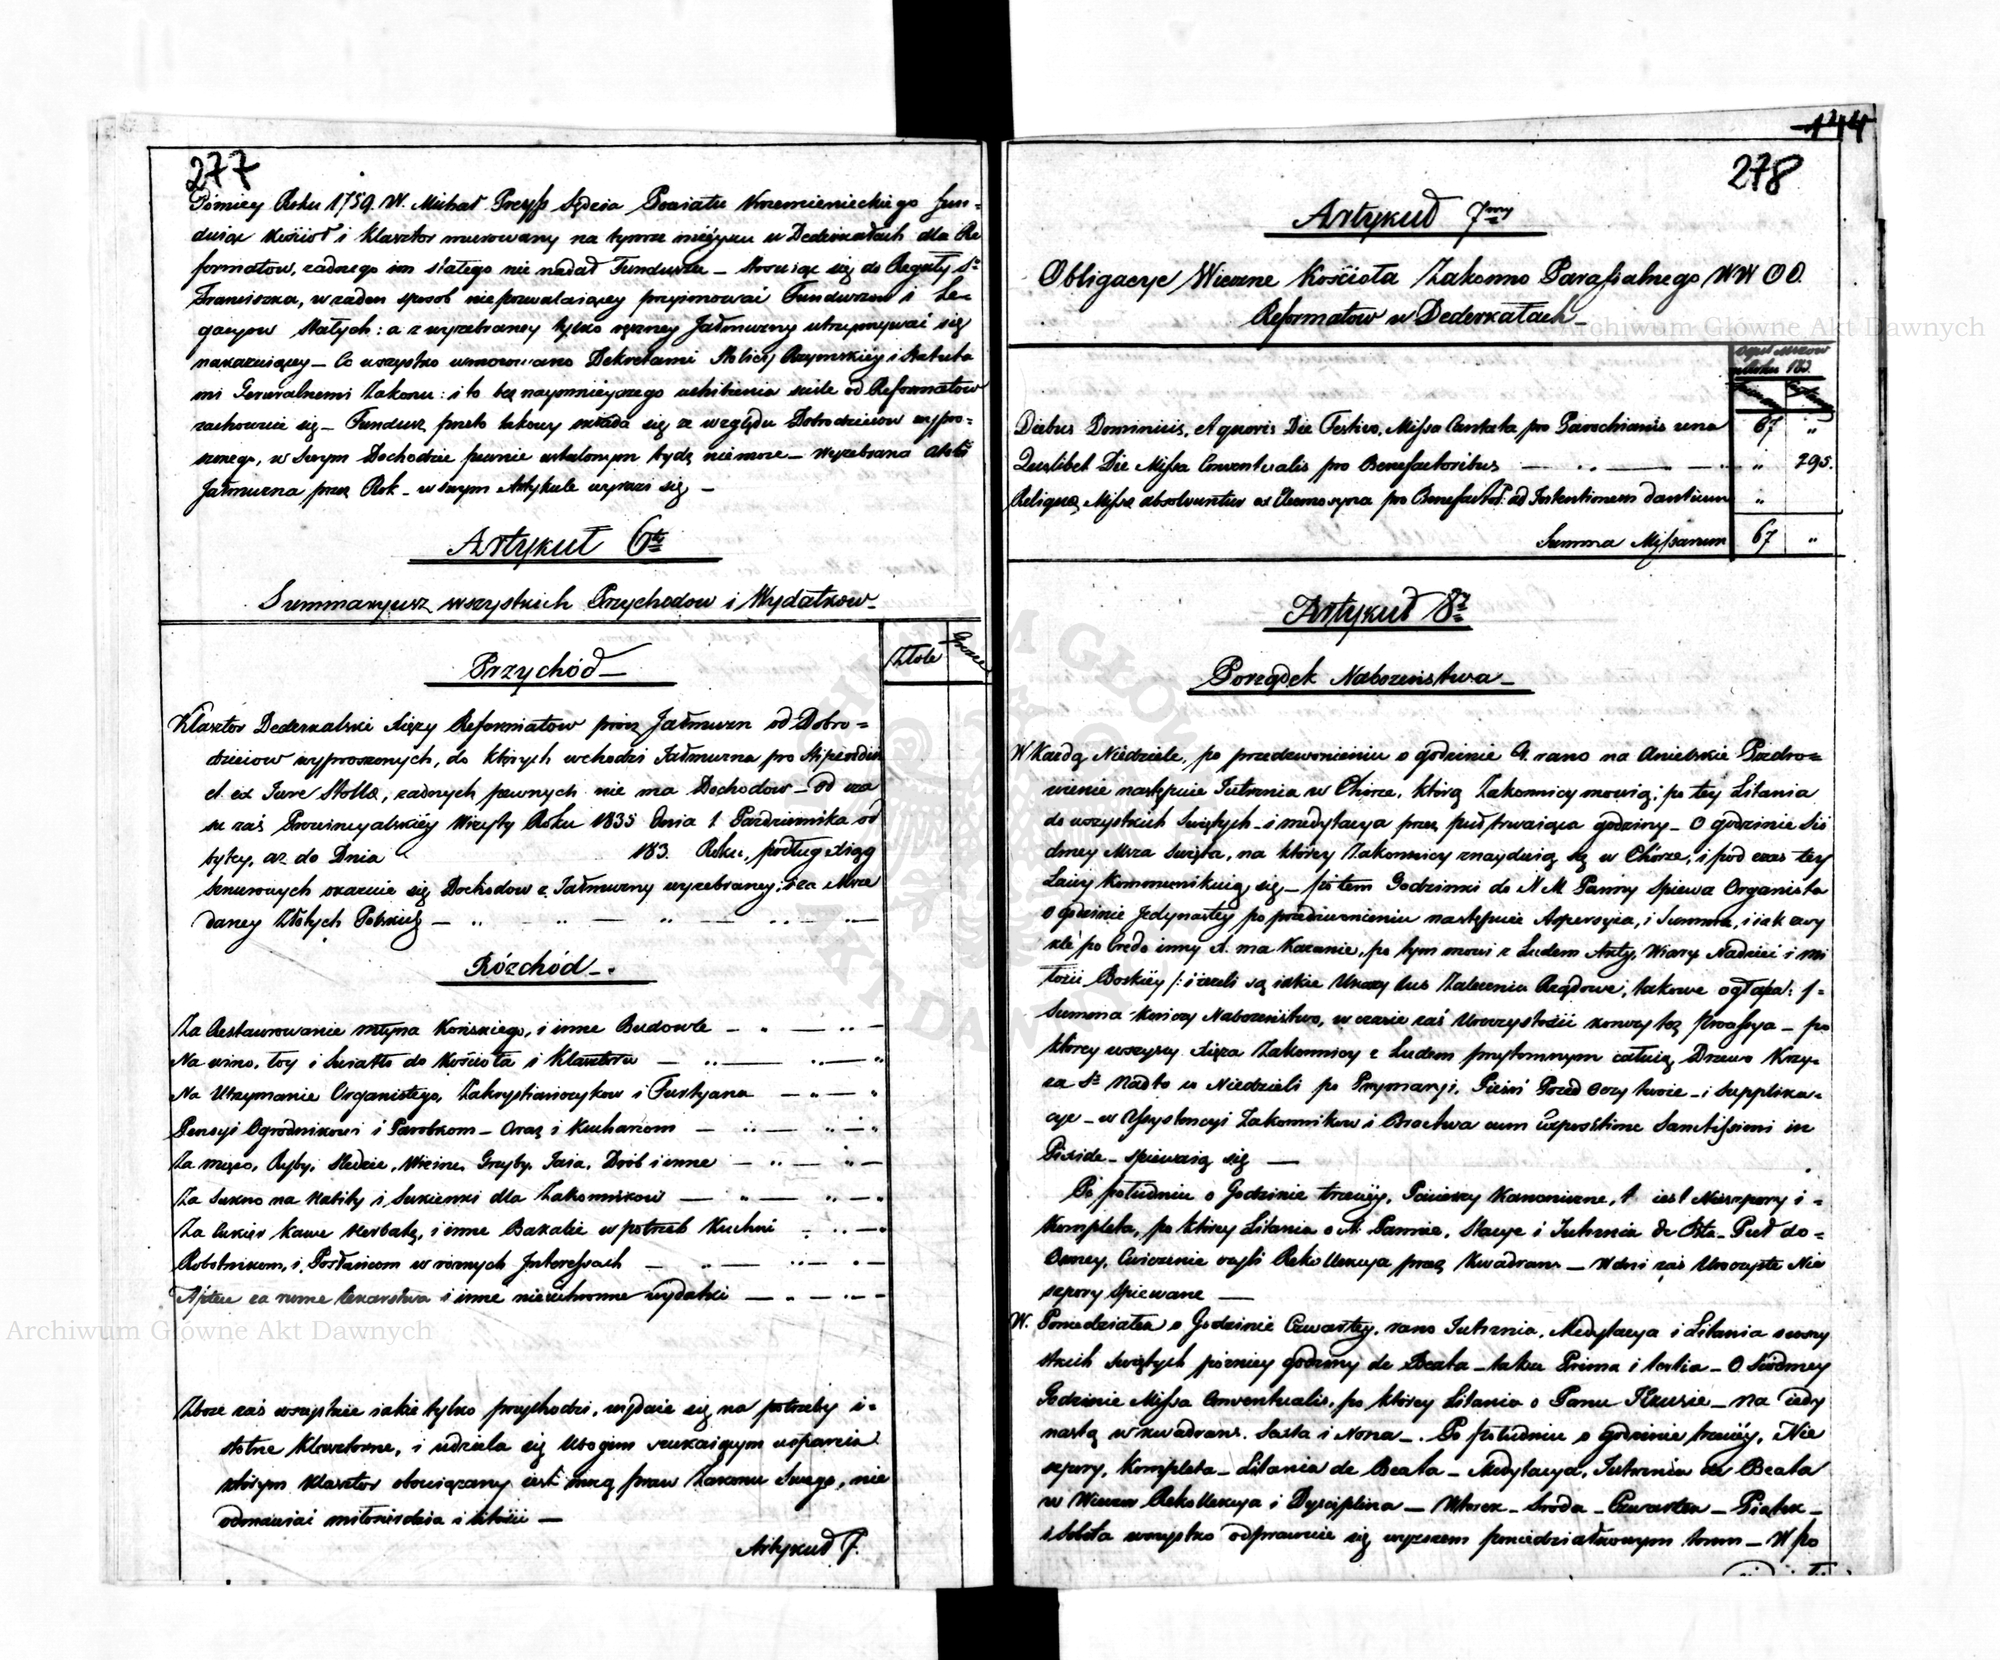 277
Pomiey Roku 1759. W. Michał Preyss Sędzia Powiatu Krzemienieckiego fun-
duiąc Kościoł i Klasztor murowany na tymże mieyscu w Dederkałach dla Re
formatow, żadnego im stałego nie nadał Funduszu – stosuiąc się do Reguły Sgo
Franciszka, w żaden sposob niepozwalaiącey przyimować Funduszow i Le-
gacyow stałych: a z wyżebraney tylko ręczney Jałmużny utrzymywać się
nakazuiącey – Co wszystko umocowano Dekretami Stolicy Rzymskiéy i Statuta
mi Generalnemi Zakonu: i to bez naymnieyszego uchibienia ściśle od Reformatow
zachowuie się – Fundusz przeto takowy składa się ze względu Dobrodzieiow wypro-
szonego, w swym Dochodzie pewnie ustalonym bydź niemoże – Wyżebrana
Jałmużna przez Rok – w swym Artykule wyrazi się –
Artykuł 6ty
Summaryusz wszystkich Przychodow i Wydatkow –
Przychód –
Złote
Grosze
Klasztor Dederkalski Xięży Reformatow prócz Jałmużn od Dobro=
dzieiow wyproszonych, do których wchodzi Jałmużna pro Stipendiis
et ex Jure Stollæ, żadnych pewnych nie ma Dochodow – od cza
su zaś Prowincyalskiéy Wizyty Roku 1835 Dnia 1 Pazdziernika od
bytey, aż do Dnia 183 Roku, podług Xiąg
sznurowych okazuie się Dochodow z Jałmużny wyżebraney, i za Msze
daney Złotych Polskich –
Rózchód –
Za Restaurowanie młyna Końskiego, i inne Budowle –
Na wino, łoy i Swiatło do Kościoła i Klasztoru –
Na Utrzymanie Organistego, Zakrystianczykow i Furtyana –
Pensyi Ogrodnikowi i Parobkom – Oraz i Kucharzom –
Za mięso, Ryby, Sledzie, Grzyby, Jaia, Drób i inne –
Za Sukno na Habity i Sukienki dla Zakonnikow –
Za Cukier Kawe Herbatę, i inne Bakalie w potrzeb Kuchni
Robotnikom, i Posłańcom w roznych Interessach –
Aptece za rożne lekarstwa i inne nieuchronne wydatki –
Zboże zaś wszystkie iakie tylko przychodzi, wydaie się na potrzeby i-
stotne Klasztorne, i udziela się Ubogim szukaiącym wsparcia
którym Klasztor obowiązany iest mocą praw Zakonu Swego, nie
odmawiać miłosierdzia i litości –
Artykuł 7.
144
278
Artykuł 7my
Obligacye Wieczne Kościoła Zakonno Parafialnego WW OO.
Reformatow w Dederkałach –
Diebus Dominicis, et quovis Die Festivo, Missa Cantata pro Parochianis una 67 „
Quolibet Die Missa Conventualis pro Benefactoribus – „ 295.
Reliquæ Missæ absolvuntur ex Eleemosyna pro Benefactor: ad Intentionem dantium „
Summa Missarum 67 „
Artykuł 8y
Porządek Nabożeństwa –
W Każdą Niedziele, po przedzwonieniu o godzinie rano na Anielskie Pozdro=
wienie następuie Iutrznia w Chórze, którą Zakonnicy mowią; po tey Litania
do wszystkich Swiętych – i medytacya przez puł trwaiąca godziny – O godzinie Sió
dmey Msza święta, na którey Zakonnicy znayduią się w Chórze, i pod czas tey
Laicy Kommunikuią się – potem Godzinki do N M. Panny spiewa Organista
o godzinie Jedynastey po przedzwonieniu następuie Aspersya, i Summa, i iak zwy
kle po Credo inny X. ma Kazanie, po tym mowi z Ludem Akty, Wiary Nadziei i mi
łości Boskiéy /: i ieżeli są iakie Ukazy lub Zalecenia Rządowe, takowe ogłasza: /-
Summa kończy Nabożeństwo, w czasie zaś Uroczystości kończy tęż Processya – po
którey wszyscy Xięża Zakonnicy z Ludem przytomnym całuią Drzewo Krzy-
ża Sgo Nadto w Niedzieli po Prymaryi, Pieśń Przed Oczy twoie – i Supplika-
cye – w Assystencyi Zakonnikow i Bractwa cum Expositione Sanctissimi in
Piside – spiewaią się –
Po południu o Godzinie trzeciéy, Pacierzy Kanoniczne, t iest Nieszpory i =
Kompleta, po którey Litania o N. Pannie, Stacye i Iutrznia de Bta – Puł do=
Ćwiczenie czyli Rekollekcya przez Kwadrans – W dni zaś Uroczyste Nie
szpory spiewane –
W. Poniedziałek o Godzinie Czwartey, rano Iutrznia, Medytacya i Litania o wszy
stkich swiętych pózniey godziny de Beata – także Prima i tertia – O Siódmey
Godzinie Missa Conventualis, po którey Litania o Panu Jezusie – Na iedy
nastą w kwadrans. Sexta i Nona –. Po południu o godzinie trzeciéy, Nie
szpory, Kompleta – Litania de Beata – Medytacya, Iutrznia de Beata
w Wieczor Rekollekcya i Dyscyplina – Wtorek – Sroda – Czwartek – Piątek –
i Sobota wszystko odprawuie się wyższem poniedziałkowym torem – W po
Archiwum Główne Akt Dawnych
Archiwum Główne Akt Dawnych